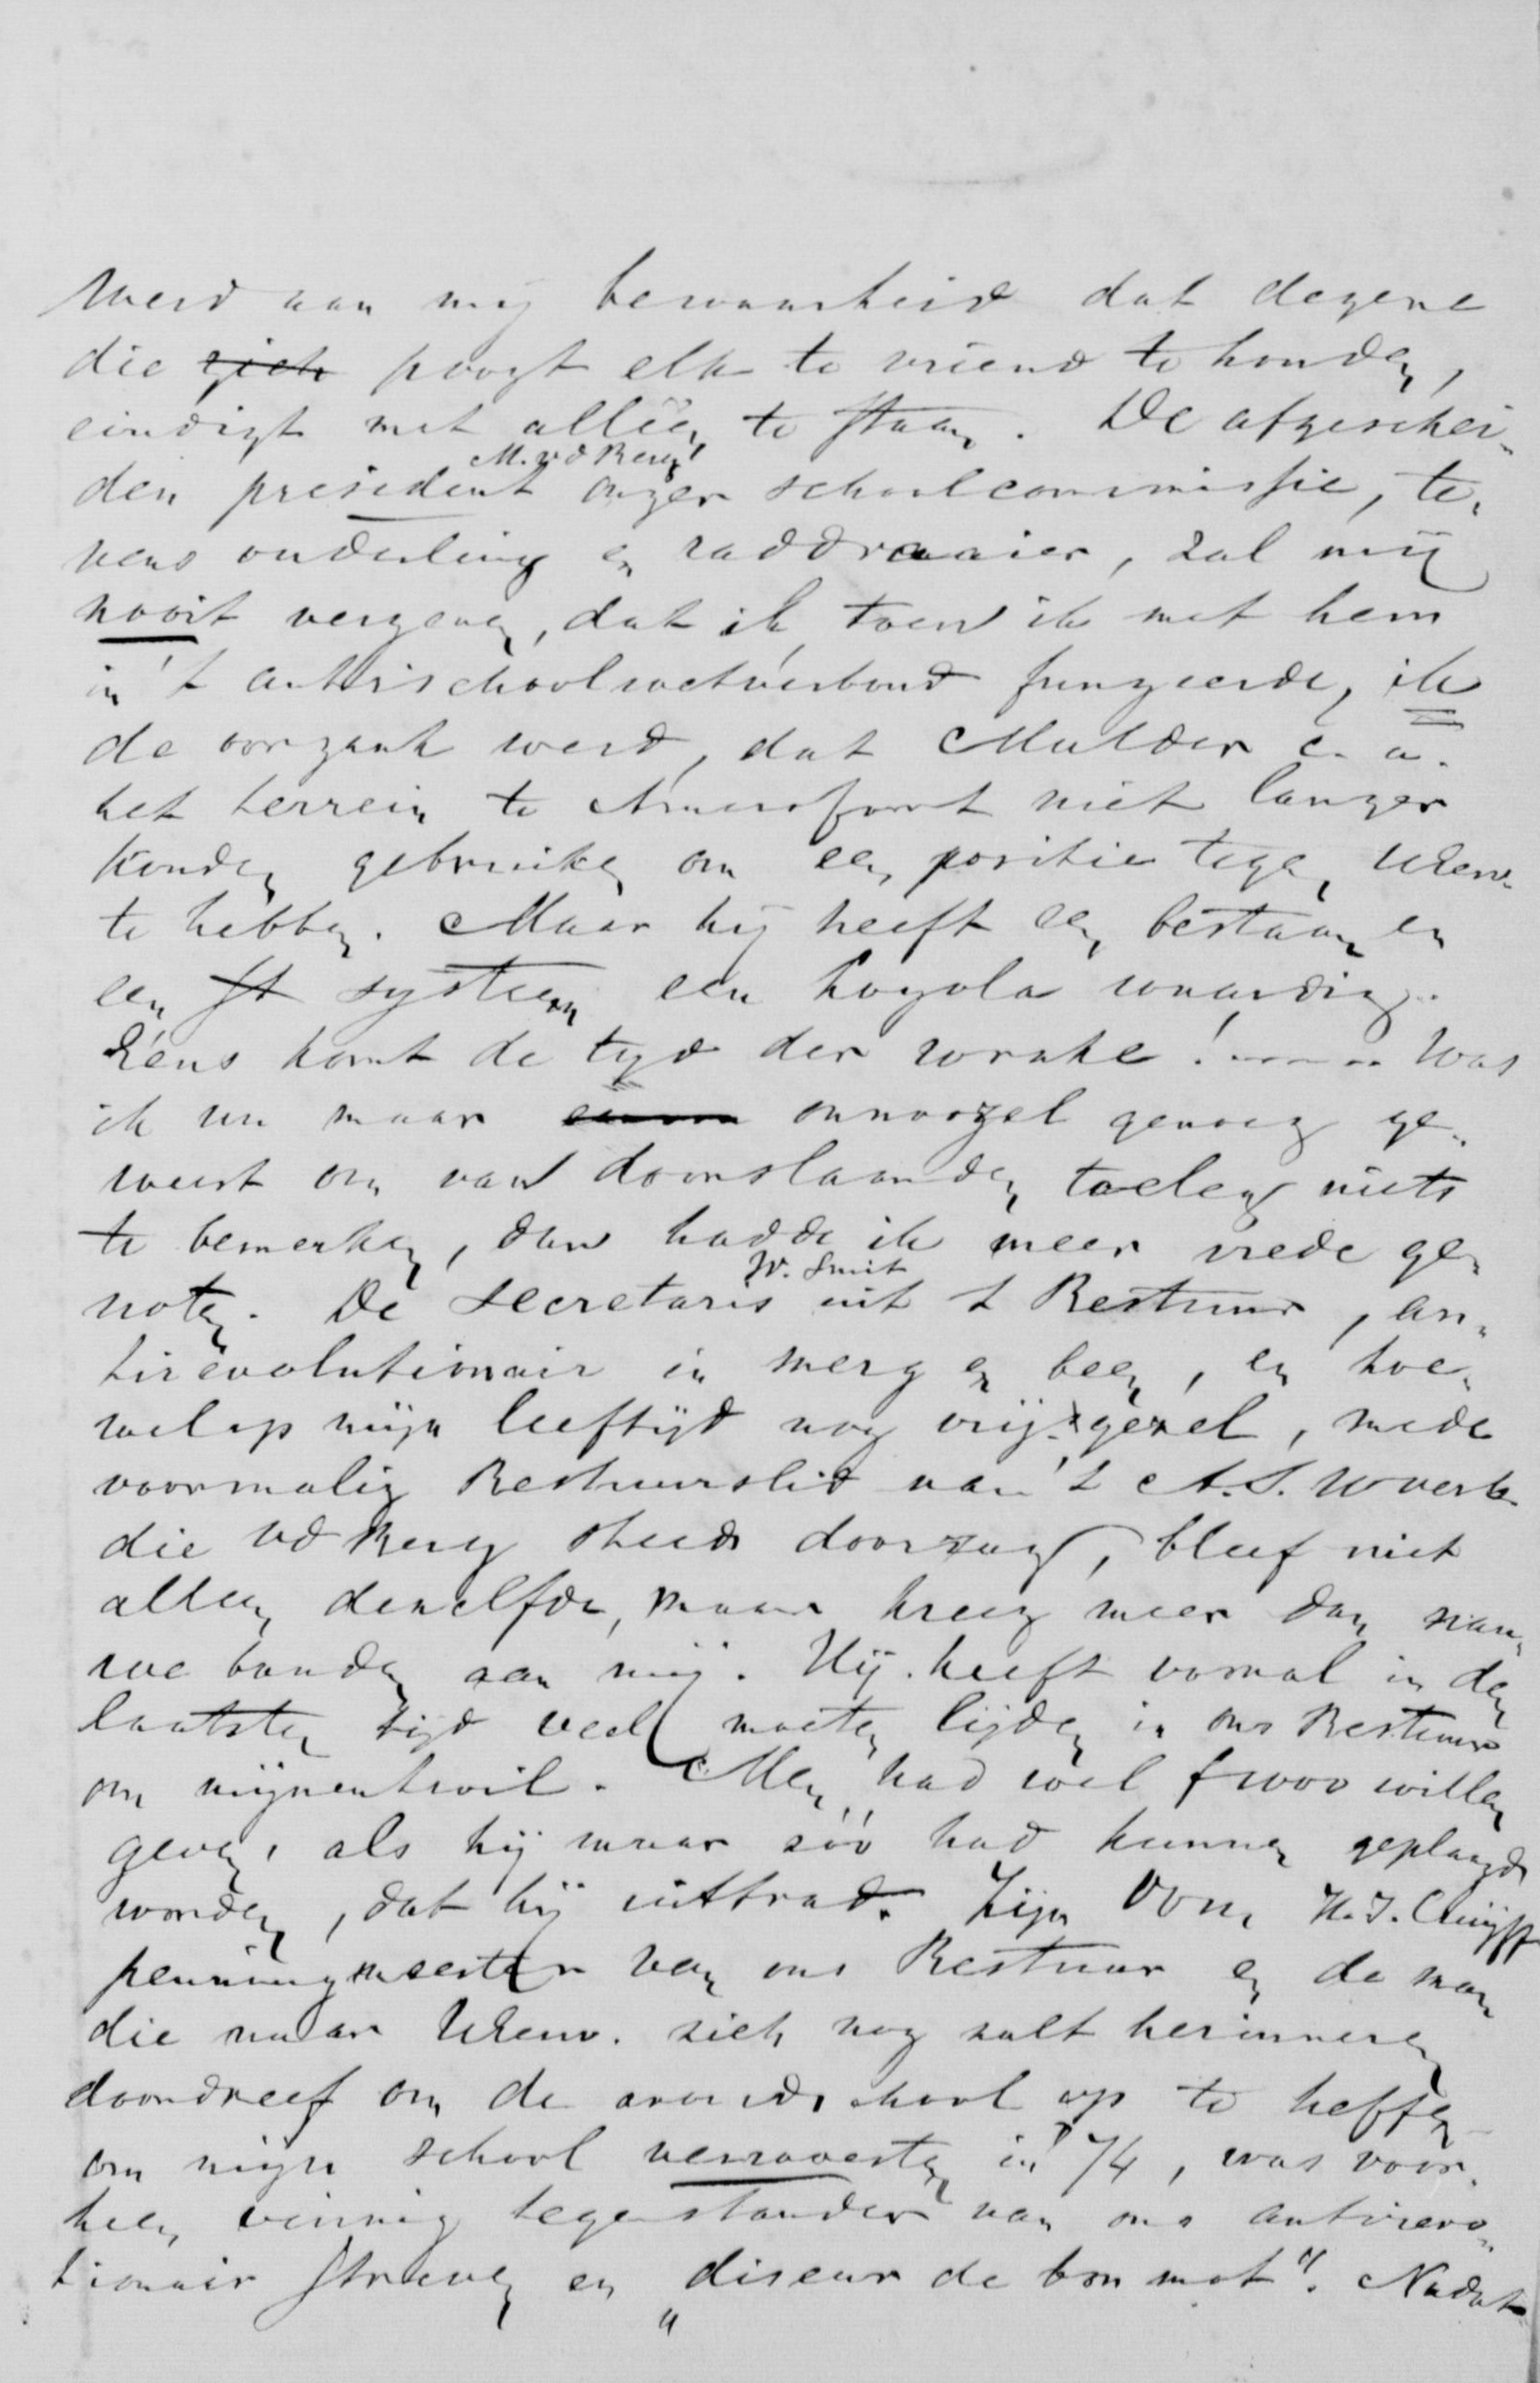 werd aan mij bewaarheid dat degene
die zich poogt elk te vriend te houden,
eindigt met alleen te staan. De afgeschei-
M. v d Berg
den president onzer schoolcommissie, te-
vens ouderling en raddraaier, zal mij
nooit vergeven, dat ik toen ik met hem
in 't antischoolwetverbond fungeerde, ik
de oorzaak werd, dat Mulder c. a.
het terrein te Amersfoort niet langer
konden gebruiken om een positie tegen UEerw.
te hebben. Maar hij heeft een bestaan en
een st systeem een Loyola waardig.
Eens komt de tyd der wrake! Was
ik nu maar onnoozel genoeg ge-
weest om van doorslaanden niets
te bemerken, dan hadde ik meer vrede ge-
W. Smit
noten. De secretaris uit 't Bestuur, an-
tirevolutionair in merg en been, en hoe-
wel op mijn leeftijd nog vrijgezel, mede
voormalig Bestuurslid van 't A.S.W verb.
die vd Berg steeds doorzag, bleef niet
alleen dezelfde, maar kreeg meer dan nau-
we banden aan mij. Hij heeft vooral in den
laatsten tijd veel moeten lijden in ons Bestuur
om mijnentwil. Men had wel willen
geven, als hij maar zóó had kunnen geplaagd
worden, dat hij uittrad. Zijn Oom, H.J. Cruijff
penningmeester van ons Bestuur en de man
die naar UEerw. zich nog zult herinneren
doordreef om de avondschool op te heffen
om mijn school verwoesten in 74, was voor-
heen vinnig tegenstander van ons antirevo-
tionair streven en "diseur de bon mot". Nadat